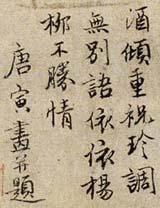 酒傾重祝珍調
無別語依依楊
柳不勝情
唐寅畫并題